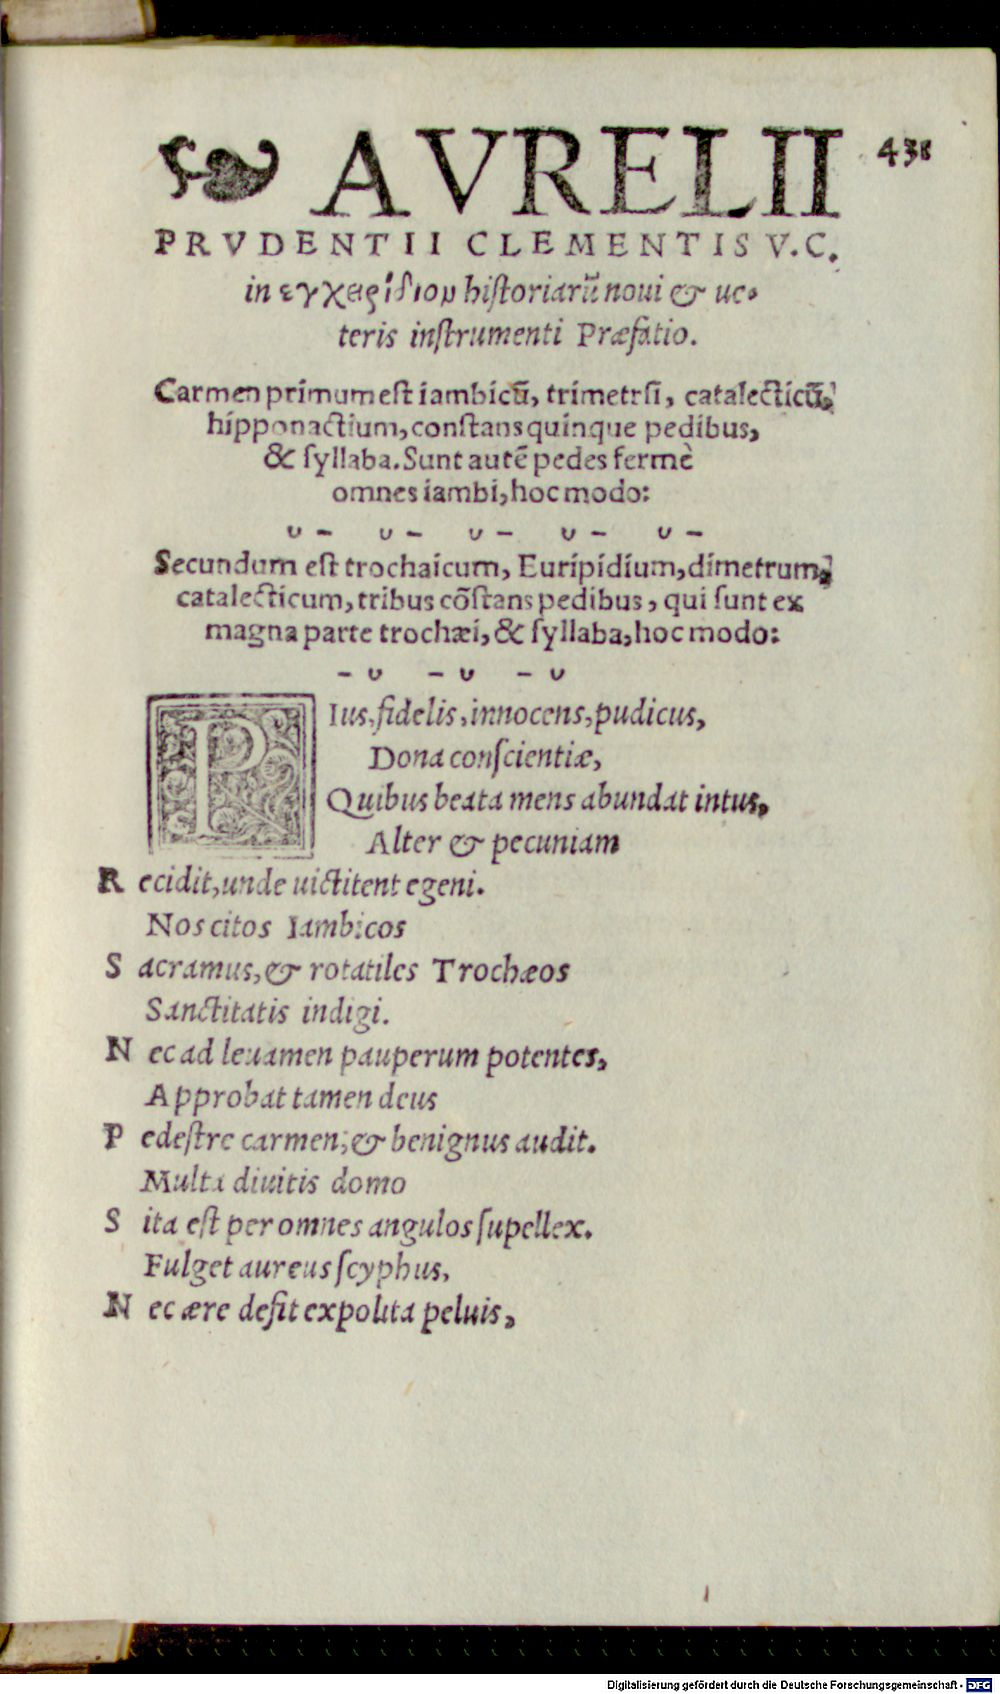 ❧ AVRELII 438
PRVDENTII CLEMENTIS V.C.
in εγχειρίδιον historiarū noui & ue-
teris instrumenti Præfatio.
Carmen primum est iambicū, trimetrū, catalecticū,
hipponactium, constans quinque pedibus,
& syllaba. Sunt autē pedes fermè
omnes iambi, hoc modo:
ᴗ – ᴗ – ᴗ – ᴗ – ᴗ –
Secundum est trochaicum, Euripidium, dimetrum,
catalecticum, tribus cōstans pedibus, qui sunt ex
magna parte trochæi, & syllaba, hoc modo:
– ᴗ – ᴗ – ᴗ
PIus, fidelis, innocens, pudicus,
Dona conscientiæ,
Quibus beata mens abundat intus,
Alter & pecuniam
Recidit, unde uictitent egeni.
Nos citos Iambicos
Sacramus, & rotatiles Trochæos
Sanctitatis indigi.
Nec ad leuamen pauperum potentes,
Approbat tamen deus
Pedestre carmen, & benignus audit.
Multa diuitis domo
Sita est per omnes angulos supellex.
Fulget aureus scyphus,
Nec ære defit expolita peluis,
Digitalisierung gefördert durch die Deutsche Forschungsgemeinschaft - DFG